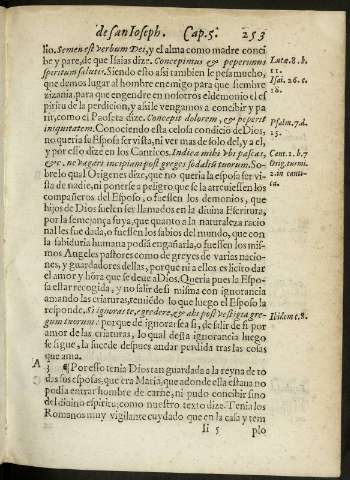 de San Ioseph. Cap. 5. 253
lio. Semen est verbum Dei, y el alma como madre conci
be y pare, de que Isaias dize. Concepimus & peperimus
spiritum salutis. Siendo esto assi tambien le pesa mucho,
que demos lugar al hombre enemigo para que siembre
zizania, para que engendre en nosotros el demonio el es
piritu de la perdicion, y assi le vengamos a concebir y pa
rir, como el Profeta dize. Concepit dolorem, & peperit
iniquitatem. Conociendo esta celosa condiciõ de Dios,
no queria su Esposa ser vista, ni ver mas de solo del, y a el,
y por esso dize en los Canticos. Indica mihi vbi pascas,
&c. ne vagari incipiam post greges sodaliũ tuorum. So-
bre lo qual Origenes dize, que no queria la esposa ser vi-
sta de nadie, ni ponerse a peligro que se la atreuiessen los
compañeros del Esposo, o fuessen los demonios, que
hijos de Dios suelen ser llamados en la diuina Escritura,
por la semejança suya, que quanto a la naturaleza racio
nal les fue dada, o fuessen los sabios del mundo, que con
la sabiduria humana podiã engañarla, o fuessen los mis-
mos Angeles pastores como de greyes de varias nacio-
nes, y guardadores dellas, porque ni a ellos es licito dar
el amor y hõra que se deue a Dios. Queria pues la Espo-
sa estar recogida, y no salir de si misma con ignorancia
amando las criaturas, temiẽdo lo que luego el Esposo la
responde. Si ignoras te, egredere, & abi post vestigia gre-
gum tuorum: porque de ignorarse a si, de salir de si por
amor de las criaturas, lo qual desta ignorancia luego
se sigue, la sucede despues andar perdida tras las cosas
que ama.
A 3 ¶ Por esso tenia Dios tan guardada a la reyna de to
das sus esposas, que era Maria, que adonde ella estaua no
podia entrar hombre de carne, ni pudo concebir sino
del diuino espiritu; como nuestro texto dize. Tenia los
Romanos muy vigilante cuydado que en la casa y tem
Ii 5 plo
Lucæ. 8. b.
11.
Isai. 26. c.
18.
Psalm. 7. d.
15.
Cant. 1. b. 7
Orig. humi.
2. in canti-
ca.
Ibidem t. 8.